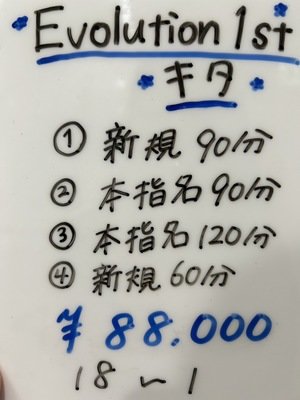 Evolution 1st
キタ
① 新規 90分
② 本指名 90分
③ 本指名 120分
④ 新規 60分
¥ 88.000
18 〜 1